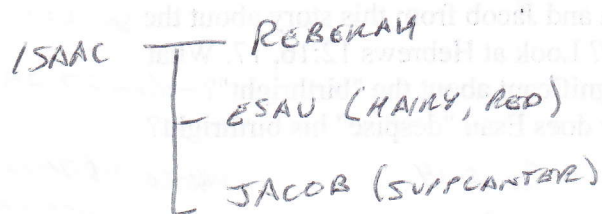 ISAAC — REBEKAH
ESAU (HAIRY, RED)
JACOB (SUPPLANTER)